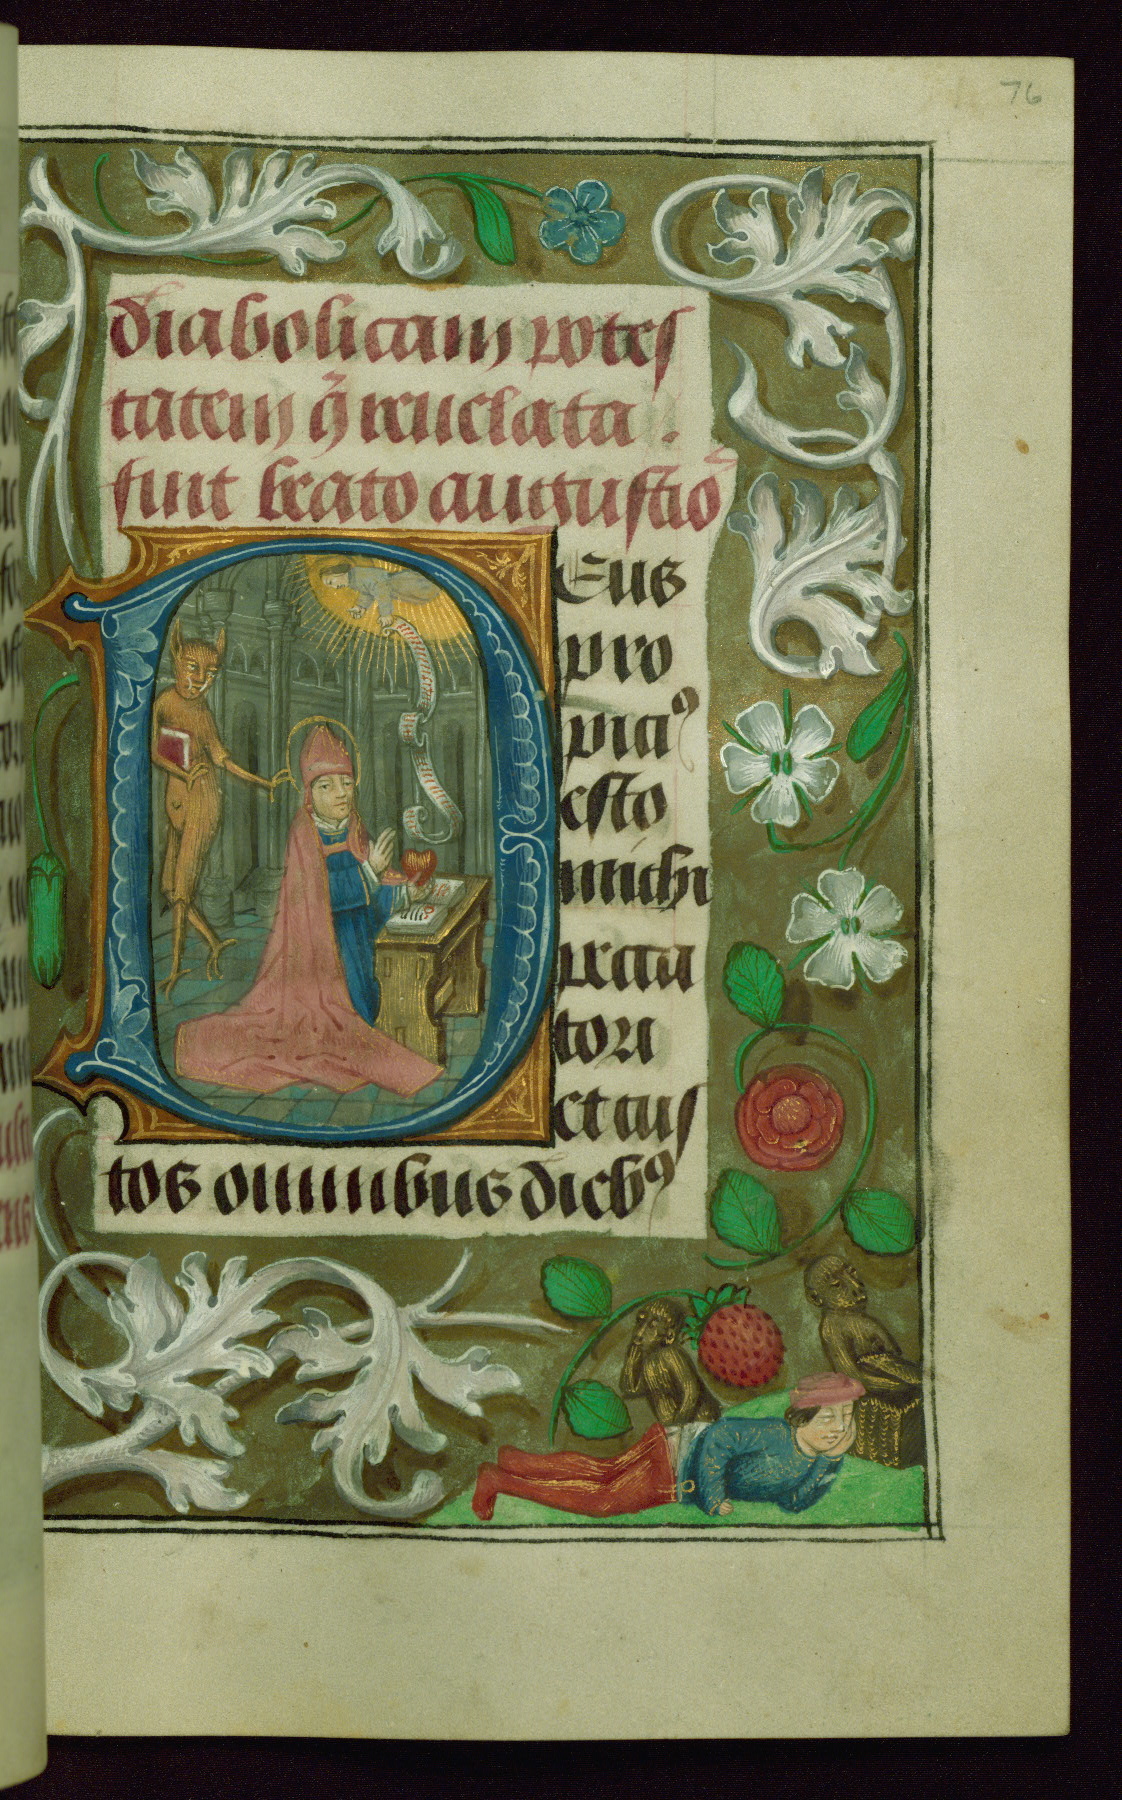 76
diabolicam potes
tatem q̄ reuelata.
sunt beato augustīo
DEus
pro
piciꝰ
esto
michi
pecca
tori
et cus
tos omnibus diebꝰ